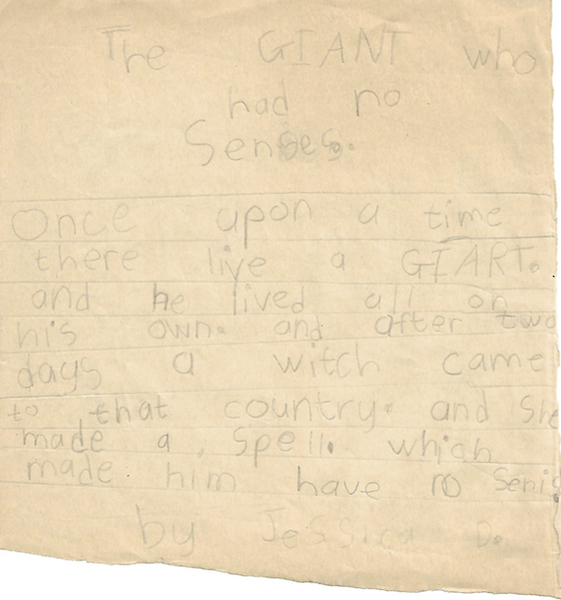 The GIANT who
had no
Senses.
Once upon a time
there live a GIART.
and he lived all on
his own. and after two
days a witch came
to that country. and She
made a spell. which
made him have no Senis
by Jessica D.